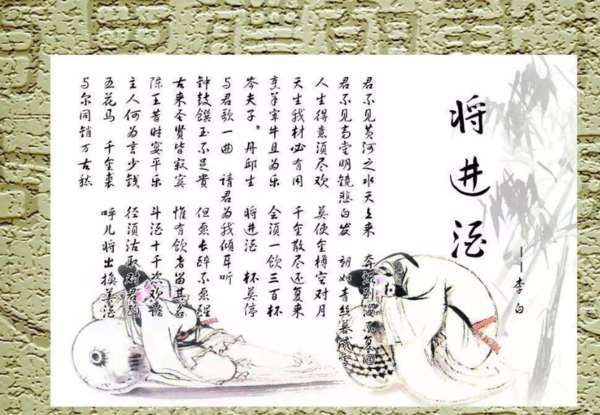 将进酒
——李白
君不见黄河之水天上来 奔流到海不复回
君不见高堂明镜悲白发 朝如青丝暮成
人生得意须尽欢 莫使金樽空对月
天生我材必有用 千金散尽还复来
烹羊宰牛且为乐 会须一饮三百杯
岑夫子。丹邱生 将进酒 杯莫停
与君歌一曲 请君为我倾耳听
钟鼓馔玉不足贵 但愿长醉不愿醒
古来圣贤皆寂寞 惟有饮者留其名
陈王昔时宴平乐 斗酒十千恣欢谑
主人何为言少钱 径须沽取对君酌
五花马 千金裘 呼儿将出换美酒
与尔同销万古愁